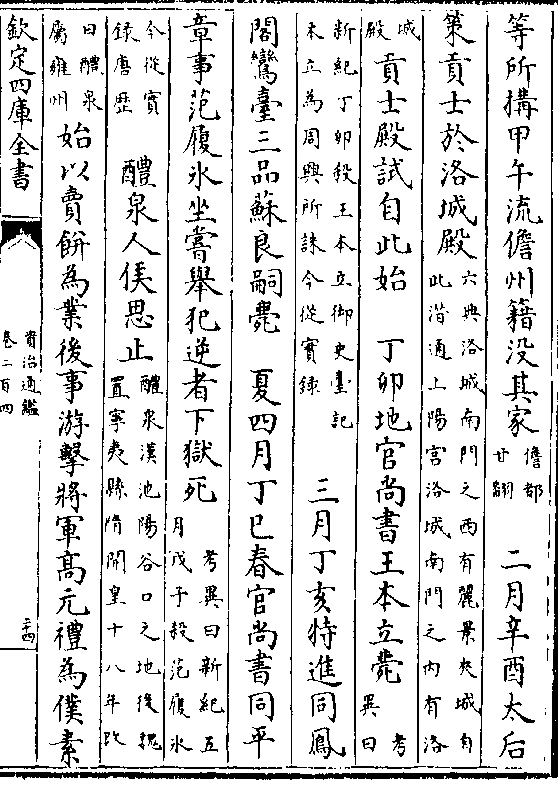 等所搆甲午流儋州籍没其家
儋都
甘翻
二月辛酉太后
策貢士於洛城殿
六典洛城南門之西有麗景夾城自
此潛通上陽宮洛城南門之内有洛
城
殿
貢士殿試自此始　丁卯地官尚書王本立薨
考
異曰
新紀丁卯殺王本立御史臺記
本立為周興所誅今從實錄
三月丁亥特進同鳳
閣鸞臺三品蘇良嗣薨　夏四月丁巳春官尚書同平
章事范履冰坐嘗舉犯逆者下獄死
考異曰新紀五
月戊子殺范履冰
今從實
錄唐歴
醴泉人侯思止
醴泉漢池陽谷口之地後魏
置寧夷縣隋開皇十八年改
曰醴泉
屬雍州
始以賣餅為業後事游擊將軍高元禮為僕素
欽定四庫全書
資治通鑑
卷二百四